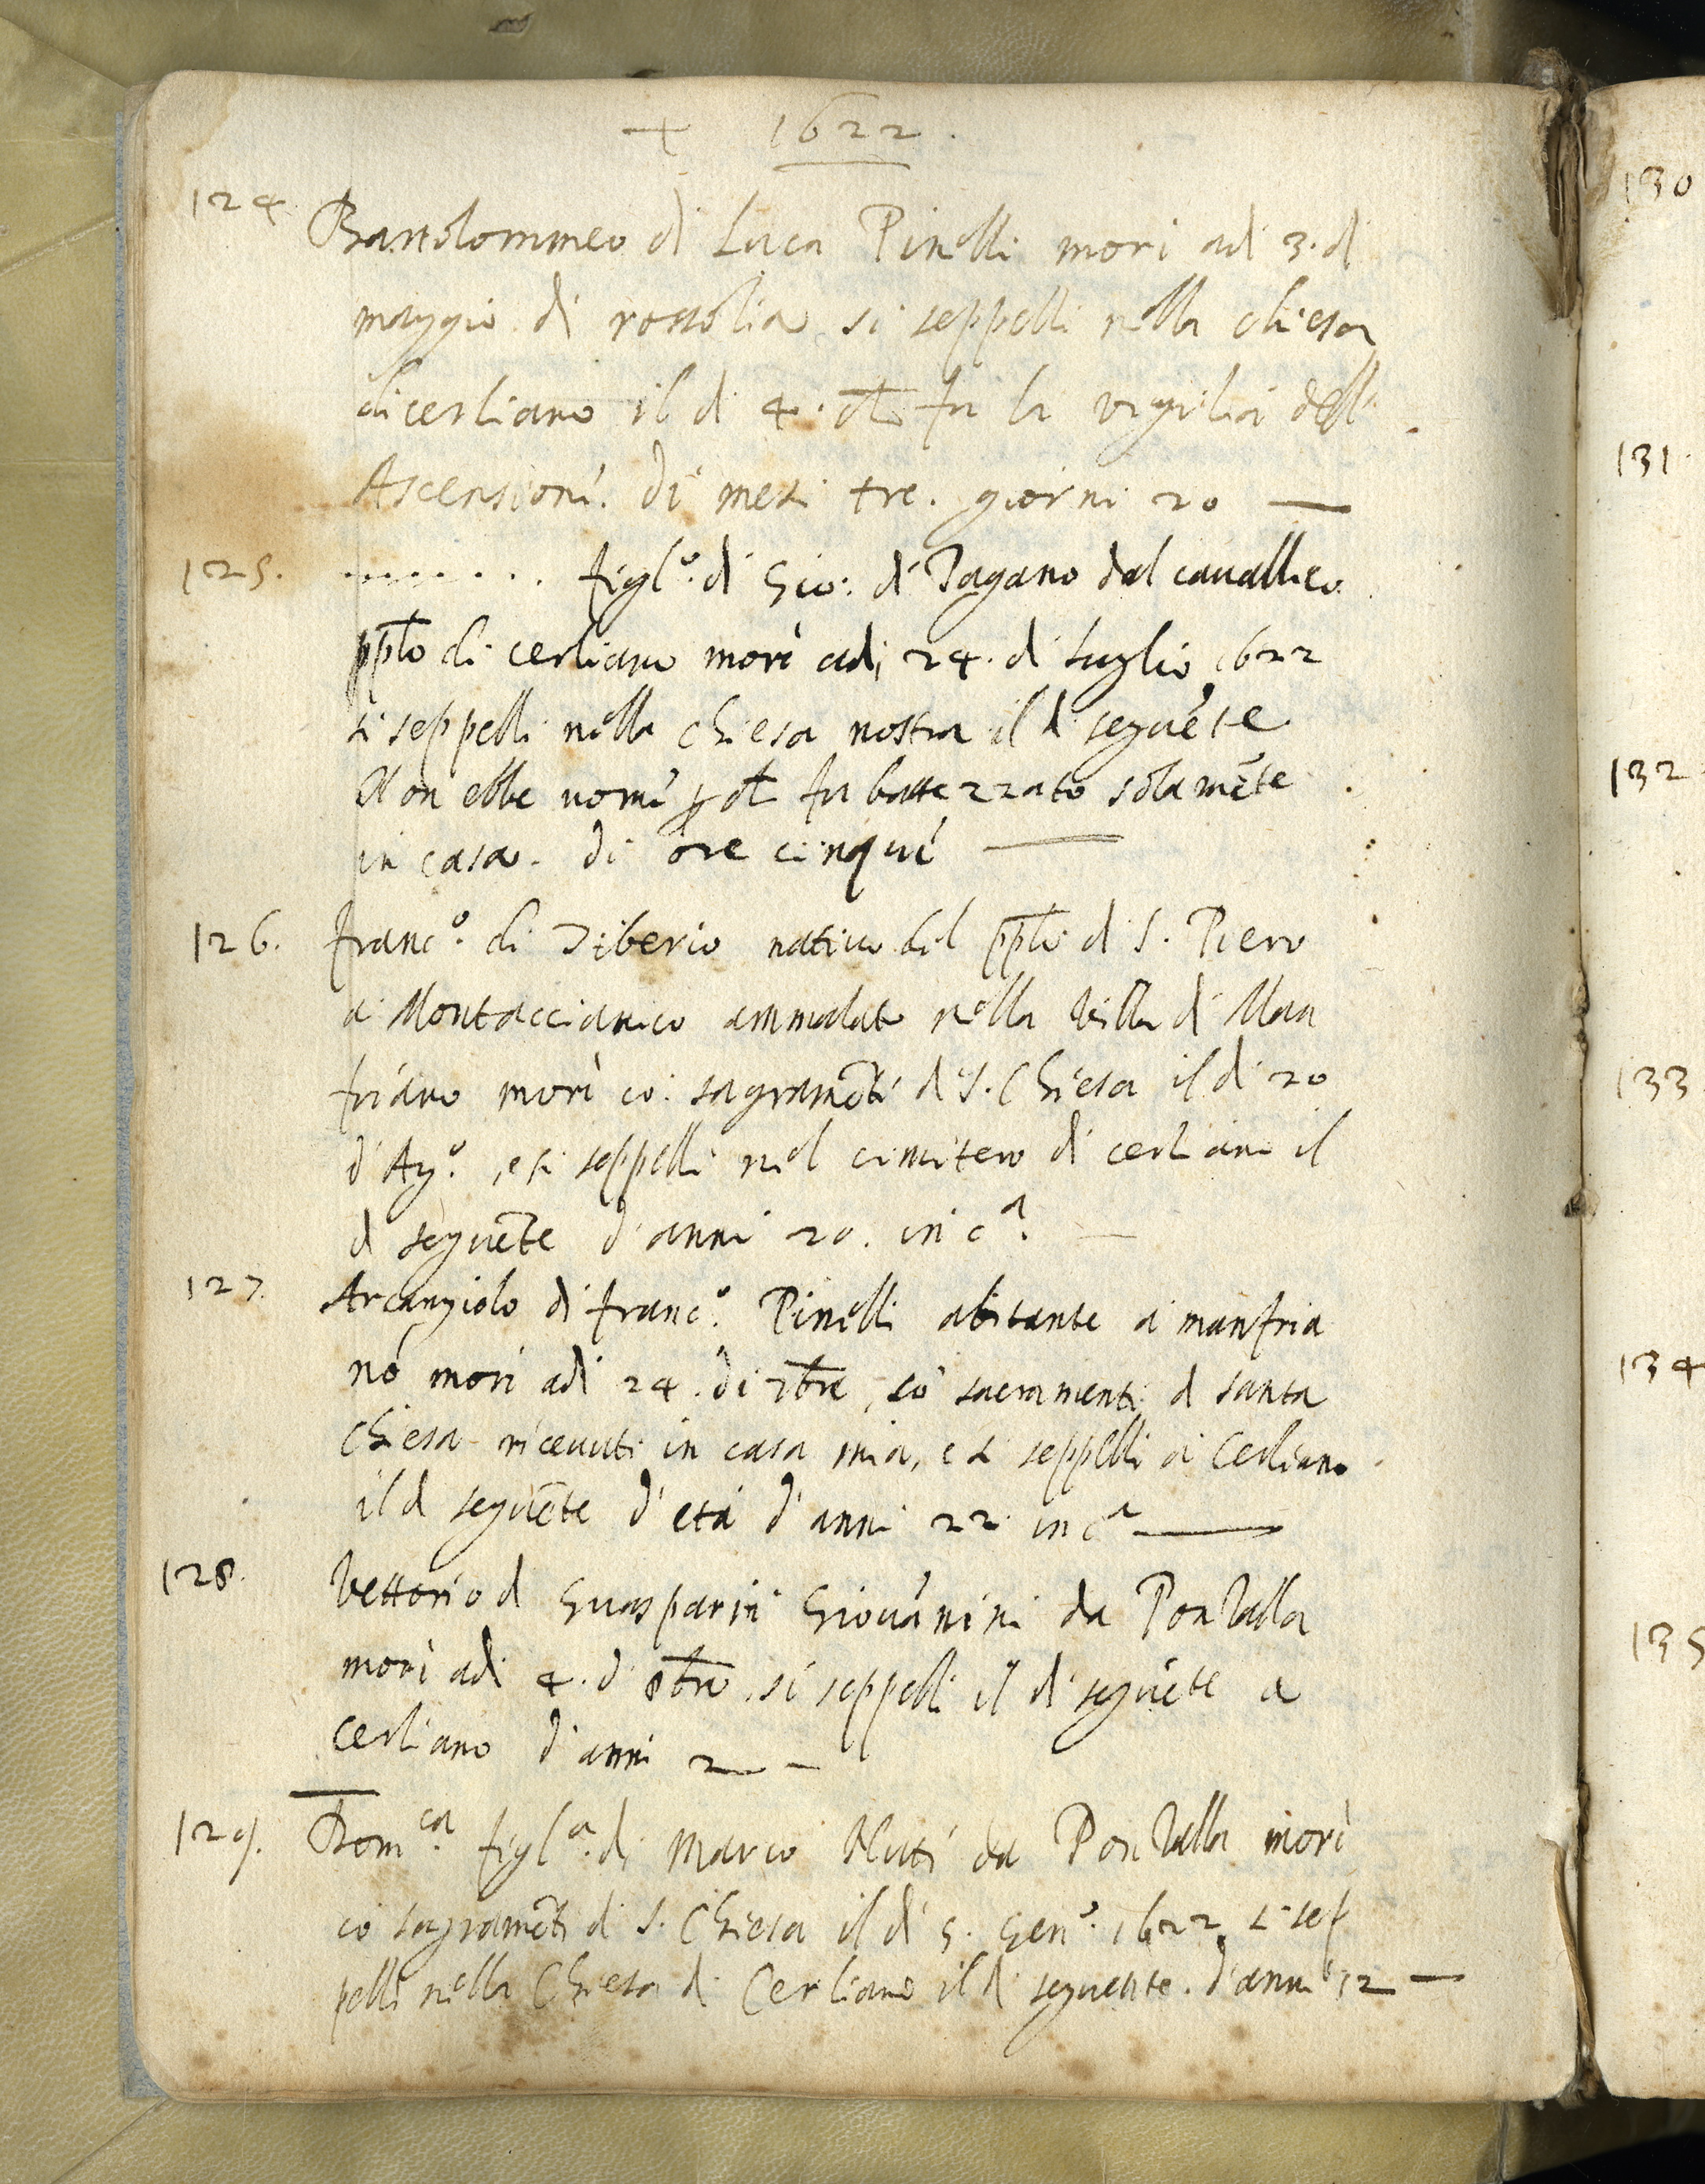 + 1622.
124. Bartolommeo di Luca Pinelli mori adi 3. di
maggio di rossolia, si seppelli nella chiesa
di cerliano il di 4. ch̄ fu la vigilia dell'
Ascensioni. di mesi tre. giorni 20 —
125. ........ figl.º di Gio: di Pagano dal cavallico
pplo di cerliano morì adi 24. di Luglio 1622
si seppelli nella chiesa nostra il di seguēte
Non ebbe nomi p ch̄ fu battezzato solamēte
in casa. di ore cinqui —
126. franc.º di Tiberio nativo del pplo di S. Piero
a Montaccianico ammalato nella villa di Man
friano morì co: sagramēti di S. Chiesa il di 20
d'Ag.º, e si seppelli nel cimitero di cerliano il
di seguēte d'anni 20. in cª.
127. Arcangiolo di franc.º Pinelli abitante a manfria
nō morì adi 24. di 7bre, cō sacramenti di santa
Chiesa ricevuti in casa mia, e si seppelli a Cerliano
il di seguēte d'età d'anni 22 in cª —
128. Vettorio di Guasparri Giovānini da Pontalla
morì adi 4. d' 8bre, si seppelli il di seguēte a
cerliano d'anni 2 —
129. Dom.ca figl.a di Marco Nuti da Pontalla morì
cō sagramēti di S. Chiesa il dì 5. Gen.º 1622 si sep
pelli nella Chiesa di Cerliano il di seguente. d'anni 12 —
130
131.
132
133
134
135